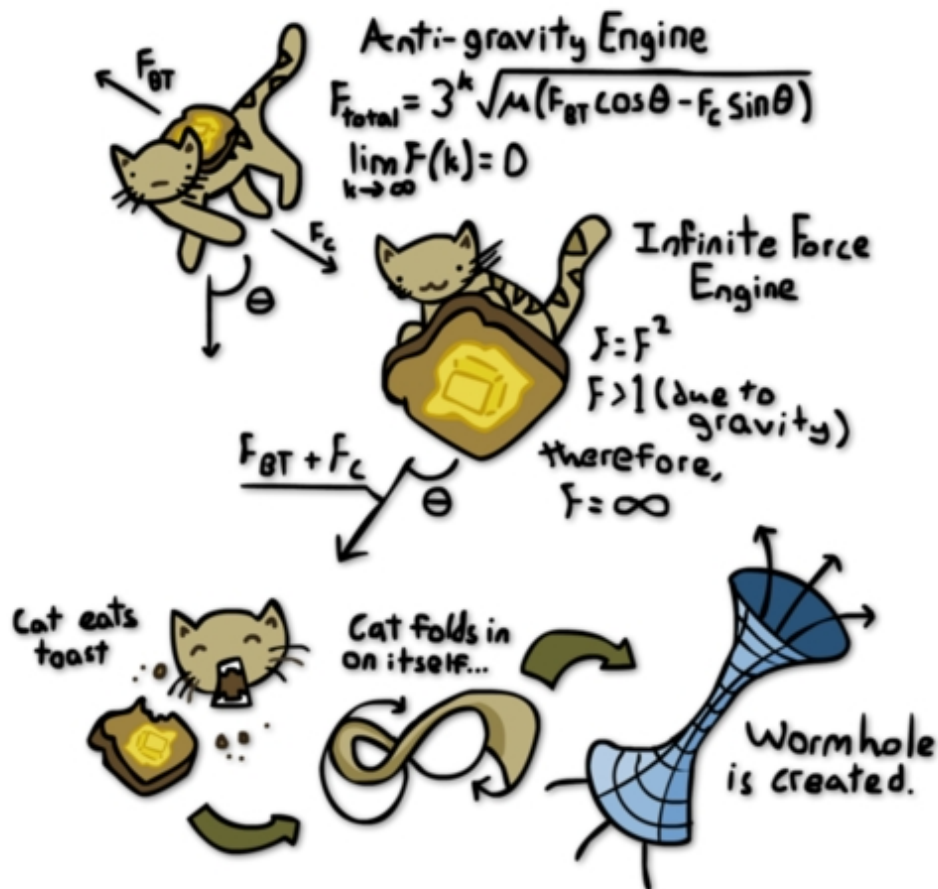 F_BT
Anti-gravity Engine
F_total = 3^k √μ(F_BT cosθ - F_c sinθ)
lim F(k) = 0
k→∞
F_c
θ
Infinite Force
Engine
F = F²
F > 1 (due to
gravity)
therefore,
F = ∞
F_BT + F_c
θ
Cat eats
toast
Cat folds in
on itself...
Wormhole
is created.